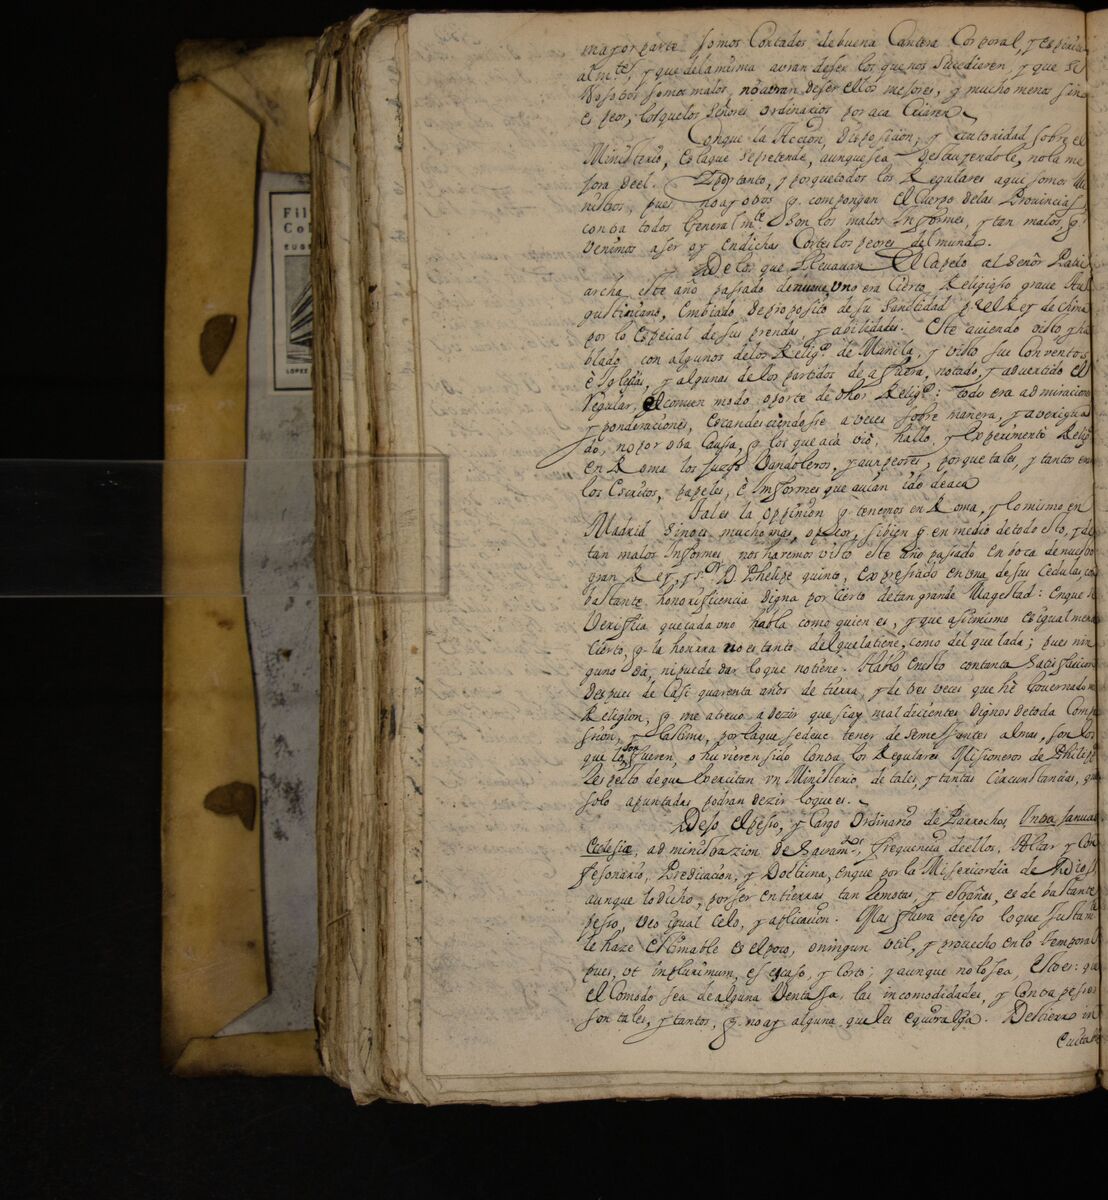 Fil
Col
EUGE
LOPEZ
mayor parte somos Cortados de buena Cantera Corporal, y espiritu
almte, y que dela misma avran deser los que nos sucedieren, y que si
vosotros somos malos, no avran deser ellos mejores, y mucho menos sin
es peor, los que los señores ordinarios por aca Criaren
Conque la Accion, disposicion, y autoridad sobre el
Ministerio, es la que se pretende, aunque sea destruyendole, no la me
jora deel. Y por tanto, y porque todos los Regulares aqui somos Mi
nistros, pues no ay otros q. compongan el Cuerpo delas Provincias
contra todos Generalmte. son los malos Informes, y tan malos, q.
venimos a ser oy en dichas Cortes los peores del mundo.
De los que llevavan El Capelo al Señor Patri
archa este año pasado de nueve uno era Cierto Religioso grave Au
gustiniano, embiado de proposito de su Santidad p.a el Rey de China
por lo especial de sus prendas, y abilidades. Este aviendo visto y ha
blado con algunos delos Relig.s de Manila, y visto sus Conventos,
e Iglesias, y algunas delos partidos de afuera, notado, y advertido el
Regular, el comun modo, o porte de dhos Relig.s: todo era admiracione
y ponderaciones, escandeciendosse a veces sobre manera, y averigua
do, no por otra Caussa, q. los que acà viò, hallò, y experimentò Relig.s
en Roma los juzgò Vandoleros, y aun peores, porque tales, y tantos eran
los Escritos, papeles, è Informes que avian ido de acà
Tal es la oppinion q. tenemos en Roma, y lo mismo en
Madrid sino es mucho mas, o peor, si bien q. en medio de todo esto, y de
tan malos Informes, nos haremos visto este año pasado en boca de nuestro
gran Rey, y s.or D. Phelipe quinto, expresado en una de sus Cedulas con
bastante honorificencia digna por cierto de tan grande Magestad: En que
Verifica que cada uno habla como quien es, y que asimismo es igualmente
Cierto, q. la honrra no es tanto del que la tiene, como del que la da; pues nin
guno da, ni puede dar lo que no tiene. Hablo en esto con tanta satisfacion
despues de Casi quarenta años de tierra, y de tres veces que hè Governado mi
Religion, q. me atrevo a dezir que si ay maldicientes dignos de toda Compa
sion, y lastima, por la que se deve tener de semejantes almas, son los
que lo son fueren, o huvieren sido contra los Regulares Misioneros de Philip.s
respecto de que exercitan un Ministerio de tales, y tantas Circunstancias, que
solo apuntadas podran dezir lo que es.
Dejo el peso, y Cargo Ordinario de Parrochos, Intra sanuas
Ecclesiæ, administrazion de Sacram.tos, frequencia de ellos, Altar y Con
fesonario, Predicacion, y Doctrina, en que por la Misericordia de Dios,
aunque lo dicho, por ser en tierras tan remotas, y estrañas, es de bastante
peso, veo igual Celo, y aplicacion. Mas fuera de esto lo que justam
te haze estimable es el poco, o ningun util, y provecho en lo temporal
pues, ut in plurimum, es escaso, y Corto; y aunque no lo sea, Esto es: que
el Comodo sea de alguna Ventaja, las incomodidades, y Contra pesos
son tales, y tantos, q. no ay alguna que les equivalga. Destierro in
cutto